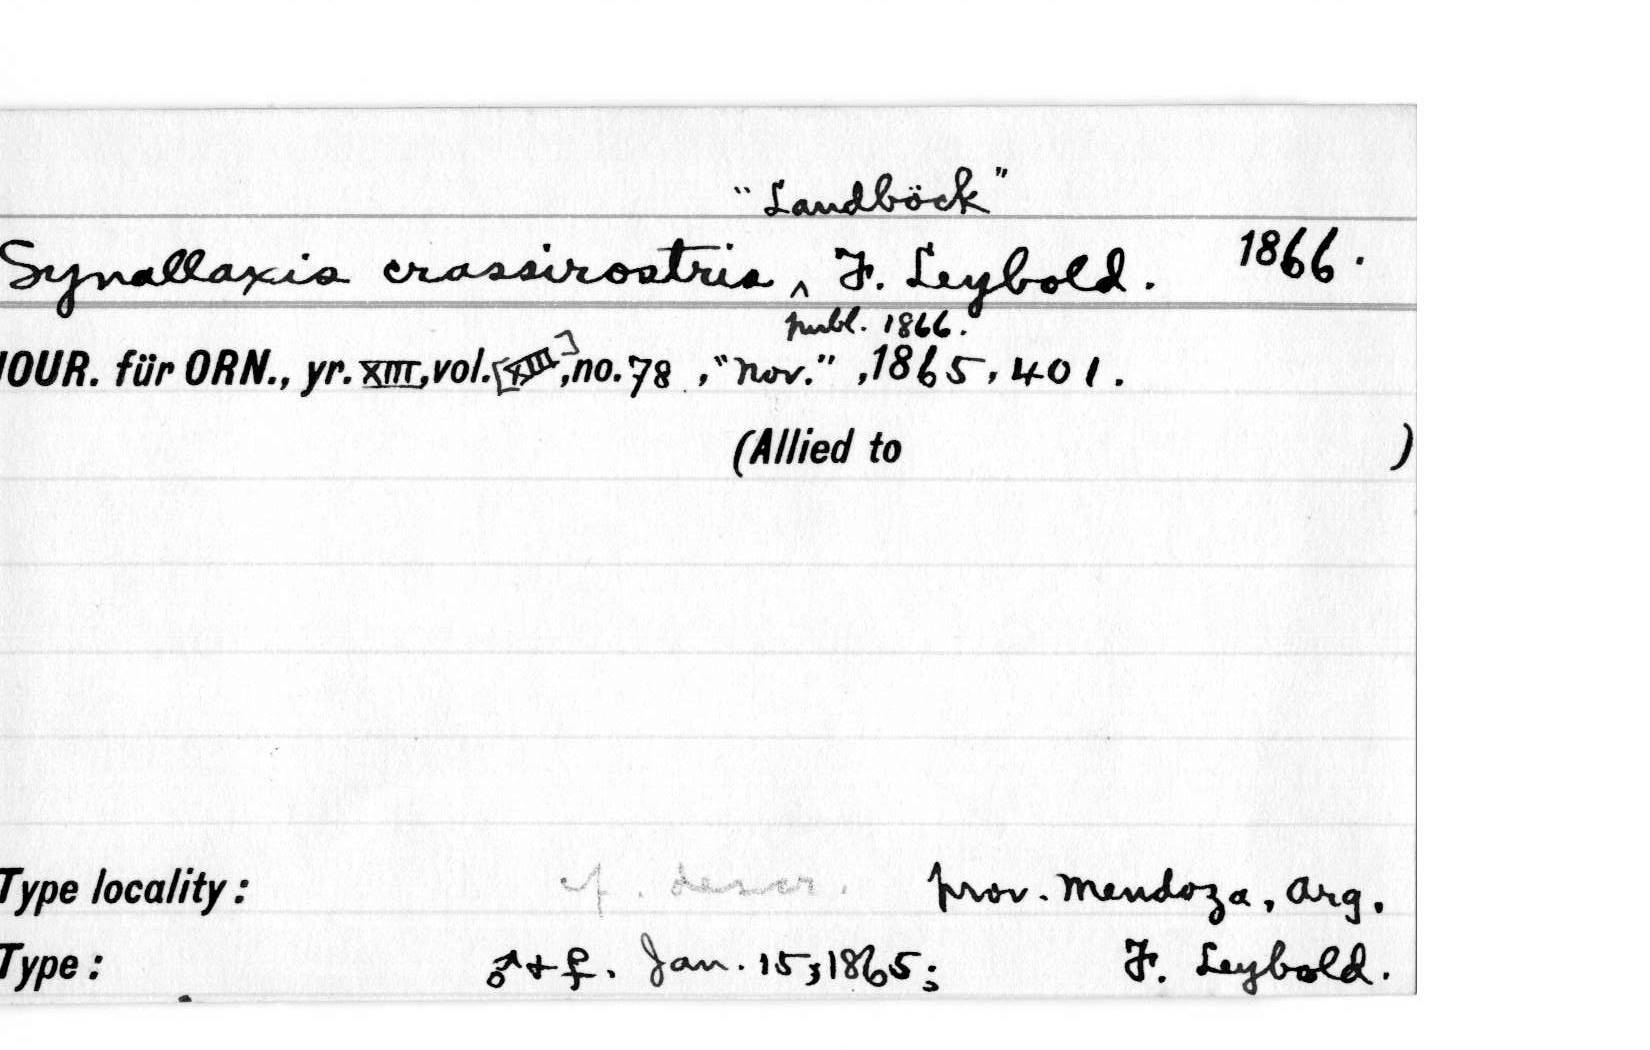 "Landböck"
Synallaxis crassirostris ^ F. Leybold. 1866.
publ. 1866.
JOUR. für ORN., yr. XIII, vol. [XIII], no. 78, "Nov.", 1865, 401.
(Allied to )
Type locality: cf. descr. prov. Mendoza, Arg.
Type: ♂ + ♀. Jan. 15, 1865; F. Leybold.